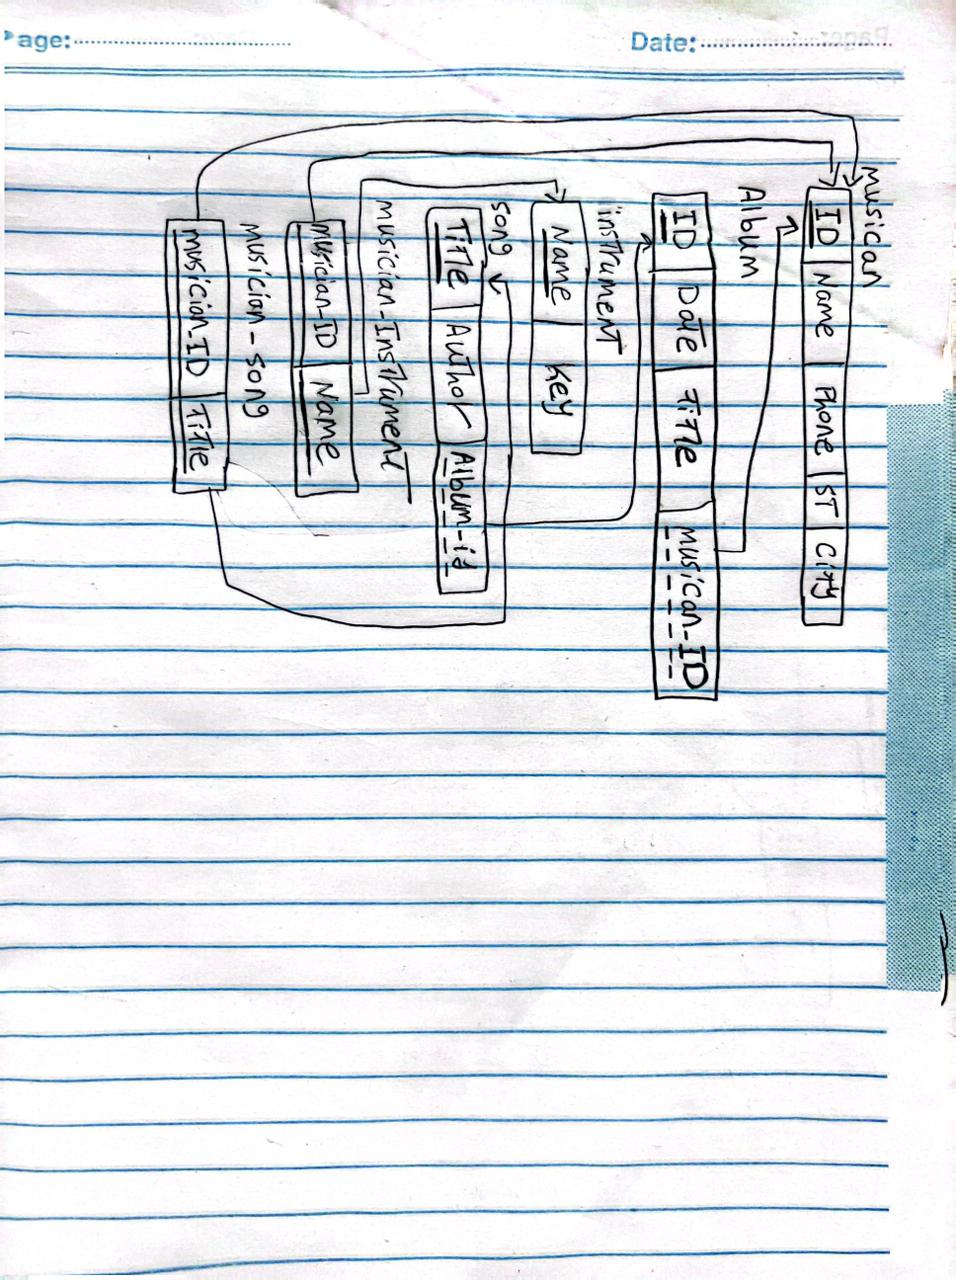 Page:
Date:
musican
ID Name Phone ST City
Album
ID Date Title musican-ID
instrument
Name Key
song
Title Author Album-id
musician-Instrument
musician-ID Name
Musician-song
musician-ID Title